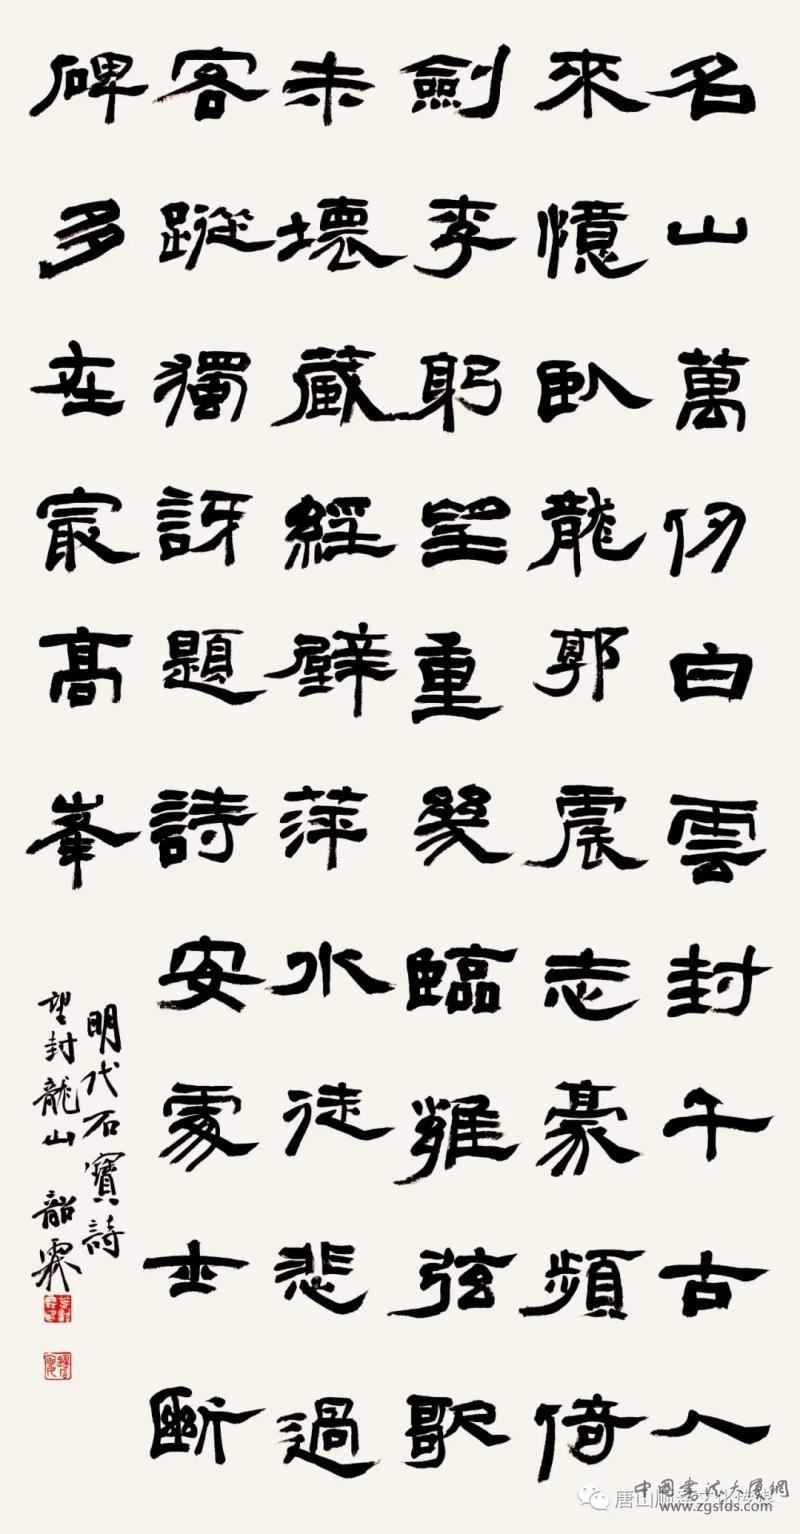 名山萬仞白雲封千古人
來憶臥龍郭震志豪頻倚
劍李躬望重幾臨雍弦歌
未壞藏經壁萍水徒悲過
客蹤獨訝題詩安處士斷
碑多在最高峯
明代石寶詩
望封龍山 韶霖
中国書法大厦網
www.zgsfds.com